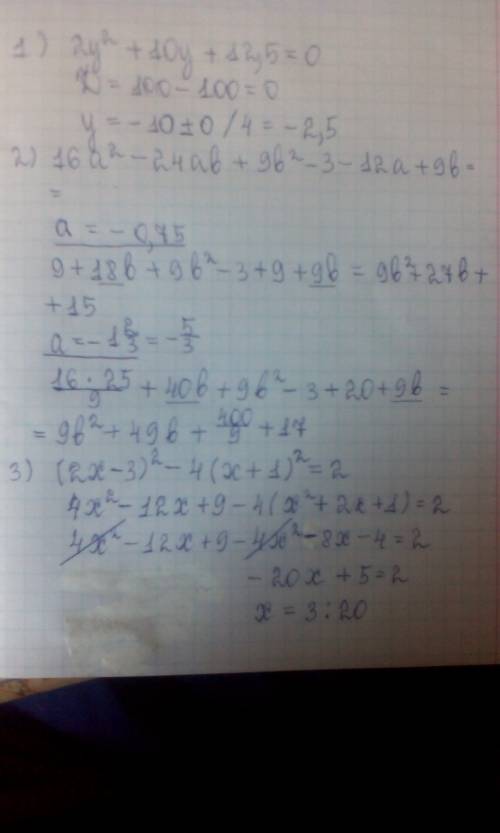 1) 2y² + 10y + 12,5 = 0
D = 100 - 100 = 0
y = -10 ± 0 / 4 = -2,5
2) 16a² - 24ab + 9b² - 3 - 12a + 9b =
=
a = -0,75
9 + 18b + 9b² - 3 + 9 + 9b = 9b² + 27b +
+ 15
a = -1 2/3 = -5/3
16 · 25/9 + 40b + 9b² - 3 + 20 + 9b =
= 9b² + 49b + 400/9 + 17
3) (2x - 3)² - 4(x + 1)² = 2
4x² - 12x + 9 - 4(x² + 2x + 1) = 2
4x² - 12x + 9 - 4x² - 8x - 4 = 2
- 20x + 5 = 2
x = 3 : 20